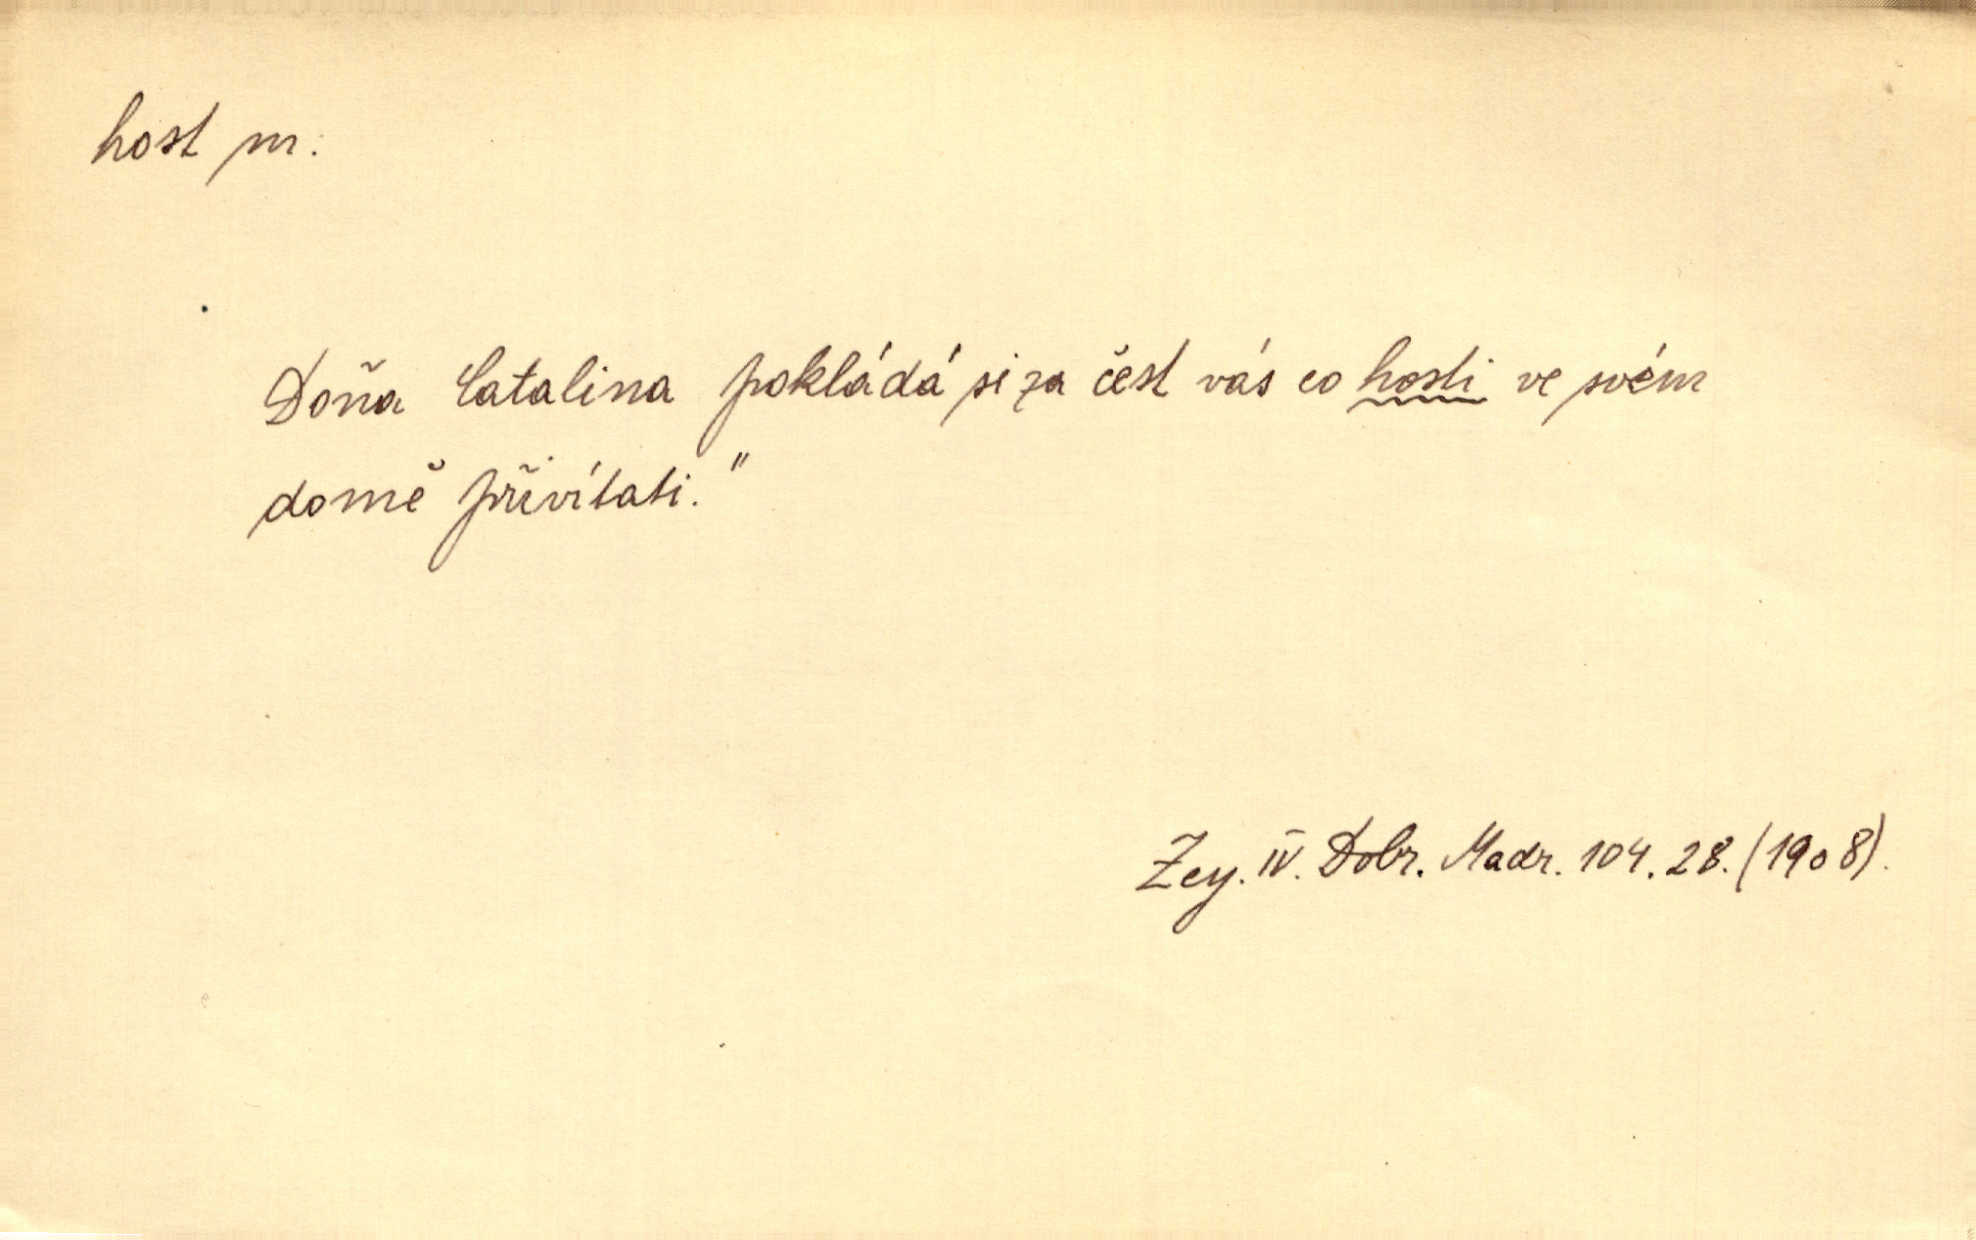 host m.
Doňa Catalina pokládá si za čest vás co hosti ve svém
domě přivítati."
Zey. IV. Dobr. Madr. 104. 28. (1908).